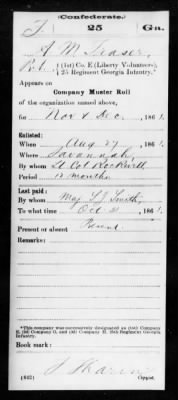 Confederate.
25 Ga.
A M
(1st) Co. E (Liberty Volunteers),
25 Regiment Georgia Infantry.*
Appears on
Company Muster Roll
of the organization named above,
for Nov & Dec, 1861.
Enlisted:
When Aug 27, 1861.
Where Savannah,
By whom Lt Col Rockwell
Period 12 months
Last paid:
By whom Maj Smith
To what time Oct 31, 1861.
Present or absent Present
Remarks:
*This company was successively designated as
Infantry.
Book mark:
(642)
Copyist.